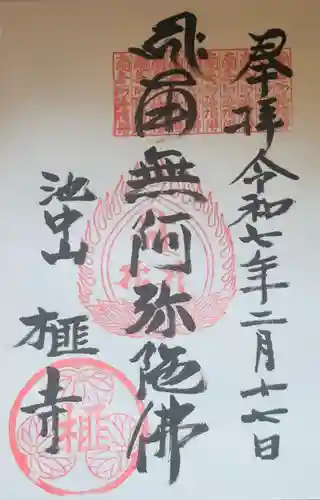 奉拝 令和七年二月十七日
南無阿弥陀佛
池中山
榧寺
榧